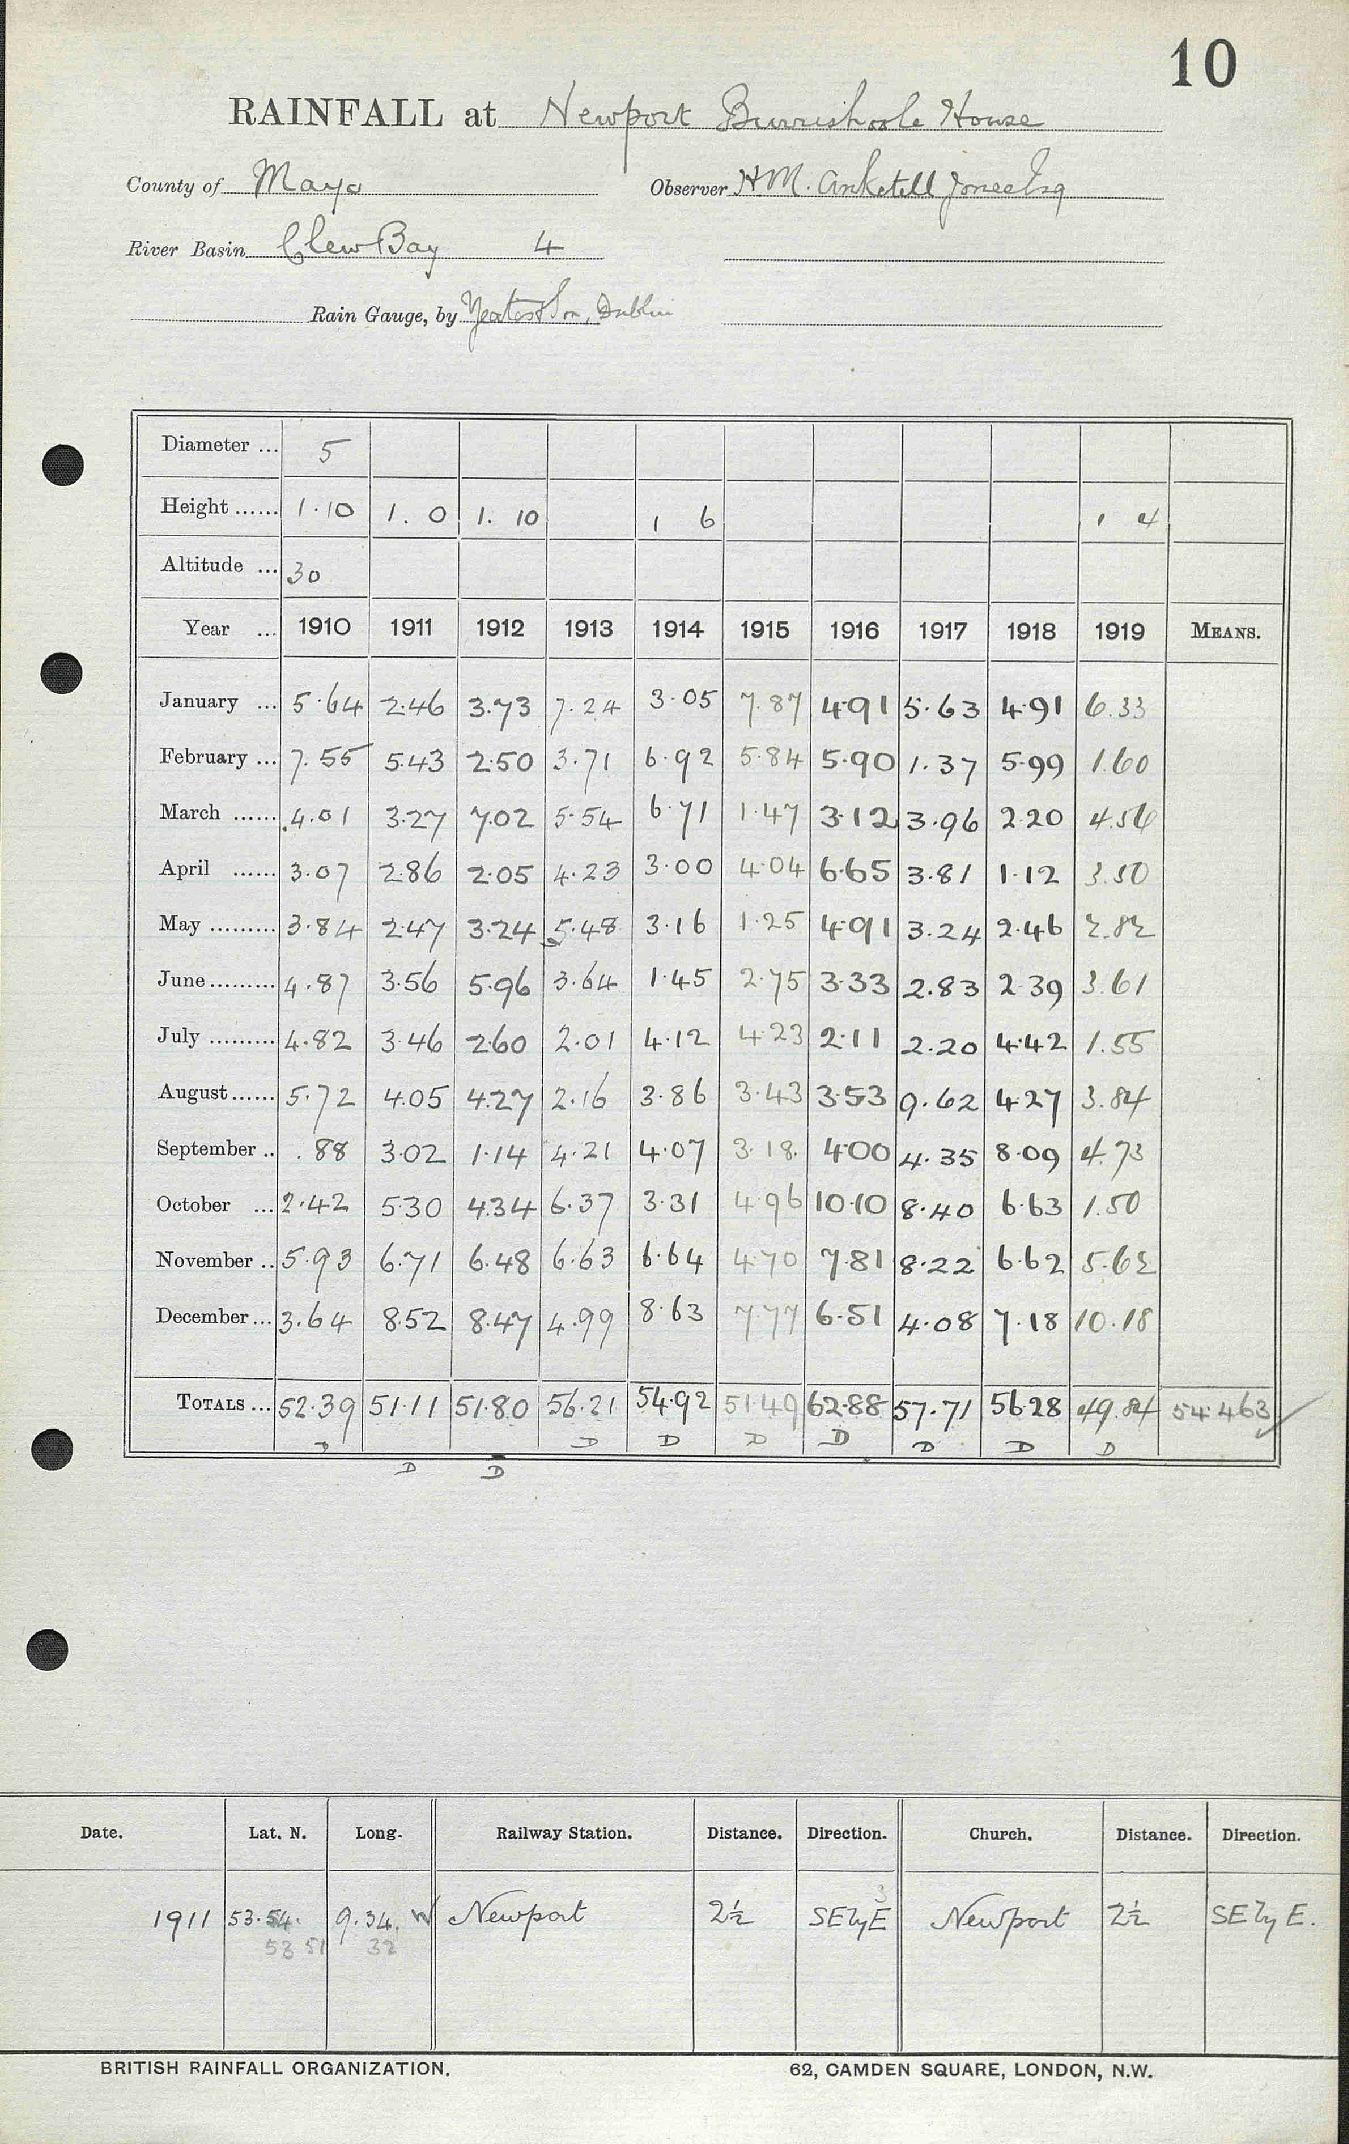 10
RAINFALL at Newport Burrishoole House
County of Mayo Observer H M. Anketell Jones Esq
River Basin Clew Bay 4
Rain Gauge, by Yeates & Son, Dublin
Diameter ... 5
Height ...... 1.10 1. 0 1. 10 1 6 1 4
Altitude ... 30
Year ... 1910 1911 1912 1913 1914 1915 1916 1917 1918 1919 MEANS.
January ... 5.64 2.46 3.73 7.24 3.05 7.87 4.91 5.63 4.91 6.33
February ... 7.55 5.43 2.50 3.71 6.92 5.84 5.90 1.37 5.99 1.60
March ...... 4.01 3.27 7.02 5.54 6.71 1.47 3.12 3.96 2.20 4.56
April ...... 3.07 2.86 2.05 4.23 3.00 4.04 6.65 3.81 1.12 3.50
May ......... 3.84 2.47 3.24 5.48 3.16 1.25 4.91 3.24 2.46 2.82
June ......... 4.87 3.56 5.96 3.64 1.45 2.75 3.33 2.83 2.39 3.61
July ......... 4.82 3.46 2.60 2.01 4.12 4.23 2.11 2.20 4.42 1.55
August ...... 5.72 4.05 4.27 2.16 3.86 3.43 3.53 9.62 4.27 3.84
September .. .88 3.02 1.14 4.21 4.07 3.18 4.00 4.35 8.09 4.73
October ... 2.42 5.30 4.34 6.37 3.31 4.96 10.10 8.40 6.63 1.50
November .. 5.93 6.71 6.48 6.63 6.64 4.70 7.81 8.22 6.62 5.62
December ... 3.64 8.52 8.47 4.99 8.63 7.77 6.51 4.08 7.18 10.18
TOTALS ... 52.39 51.11 51.80 56.21 54.92 51.49 62.88 57.71 56.28 49.84 54.463
D D D D D D D D
D D
Date. Lat. N. Long. Railway Station. Distance. Direction. Church. Distance. Direction.
3
1911 53.54. 9.34. W Newport 2½ SE by E Newport 2½ SE by E.
53 51 32
BRITISH RAINFALL ORGANIZATION. 62, CAMDEN SQUARE, LONDON, N.W.